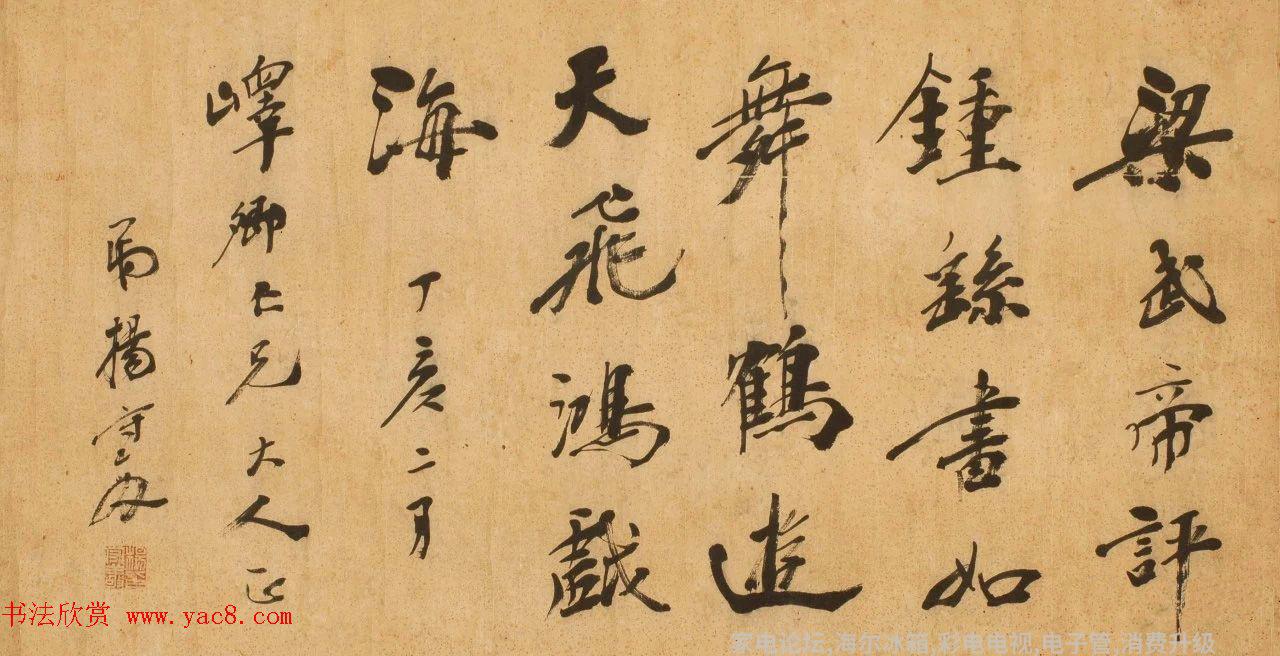 梁武帝評
鍾繇書如
舞鶴遊
天飛鴻戲
海 丁亥二月
嶧卿仁兄大人正
弟楊守敬
书法欣赏 www.yac8.com
家电论坛,海尔冰箱,彩电电视,电子管,消费升级